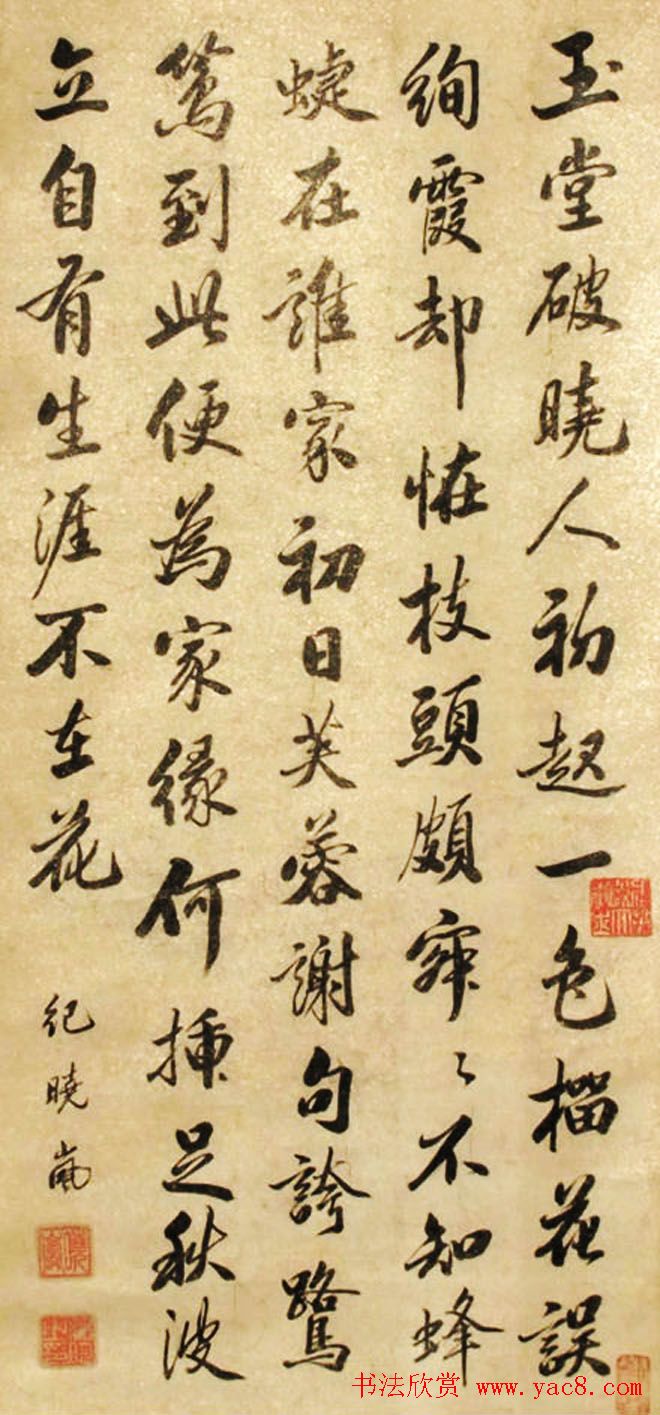 玉堂破曉人初起一色榴花誤
絢霞却恠枝頭頗寂〻不知蜂
蜨在誰家初日芙蓉謝句誇鷺
到此便為家緣何插足秋波
立自有生涯不在花
紀曉嵐
书法欣赏 www.yac8.com